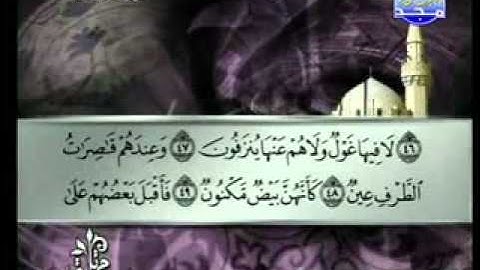 المجد
﴿٤٦﴾ لَا فِيهَا غَوْلٌ وَلَا هُمْ عَنْهَا يُنزَفُونَ ﴿٤٧﴾ وَعِندَهُمْ قَاصِرَاتُ
الطَّرْفِ عِينٌ ﴿٤٨﴾ كَأَنَّهُنَّ بَيْضٌ مَّكْنُونٌ ﴿٤٩﴾ فَأَقْبَلَ بَعْضُهُمْ عَلَىٰ